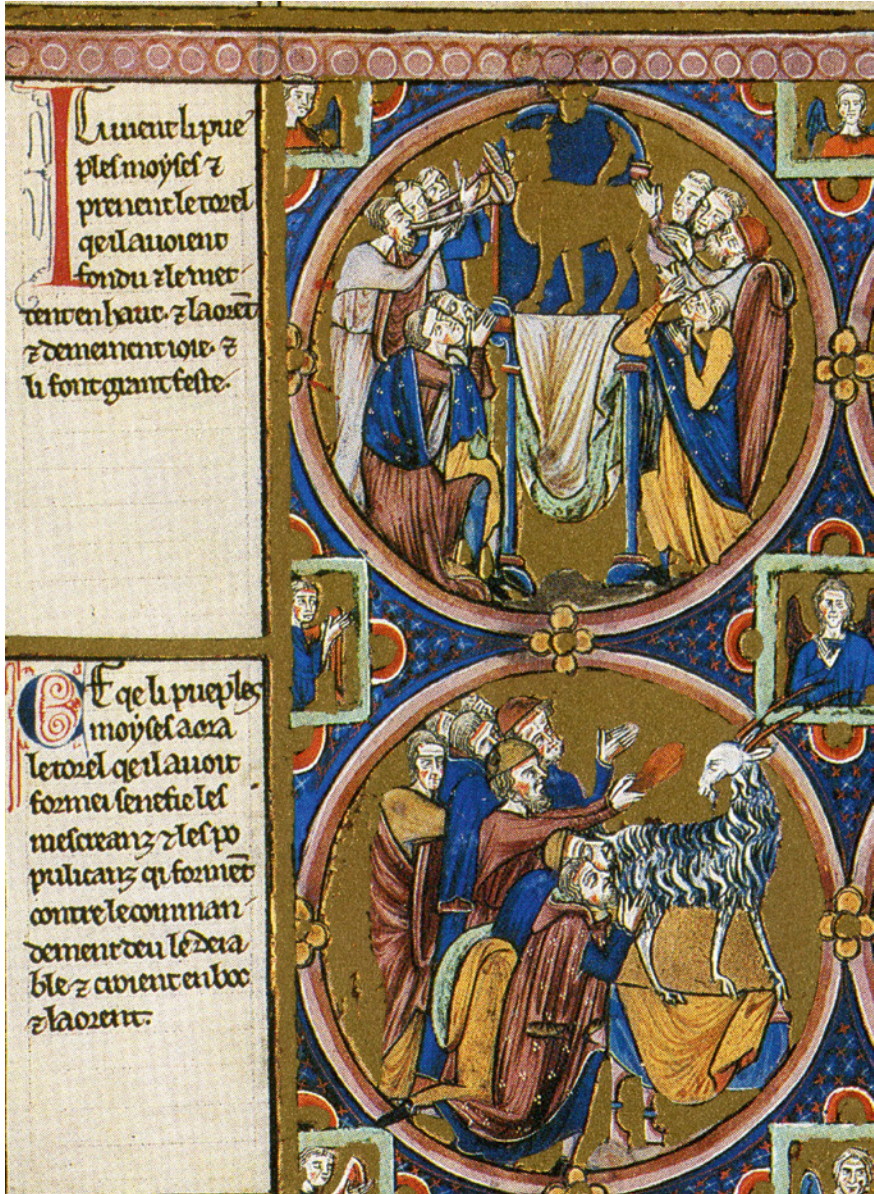 I Ci vient li pue
ples moyses ⁊
prenent le torel
qeil avoient
fondu ⁊ le met
tent en haut. ⁊ laorēt
⁊ demeinent ioie. ⁊
li font grant feste.
Ce qe li pueples
moyses aora
le torel qeil avoit
forme senefie les
mescreanz ⁊ les po
pulicanz qi formēt
contre le conman
dement deu le deia
ble ⁊ croient en boc
⁊ laorent.